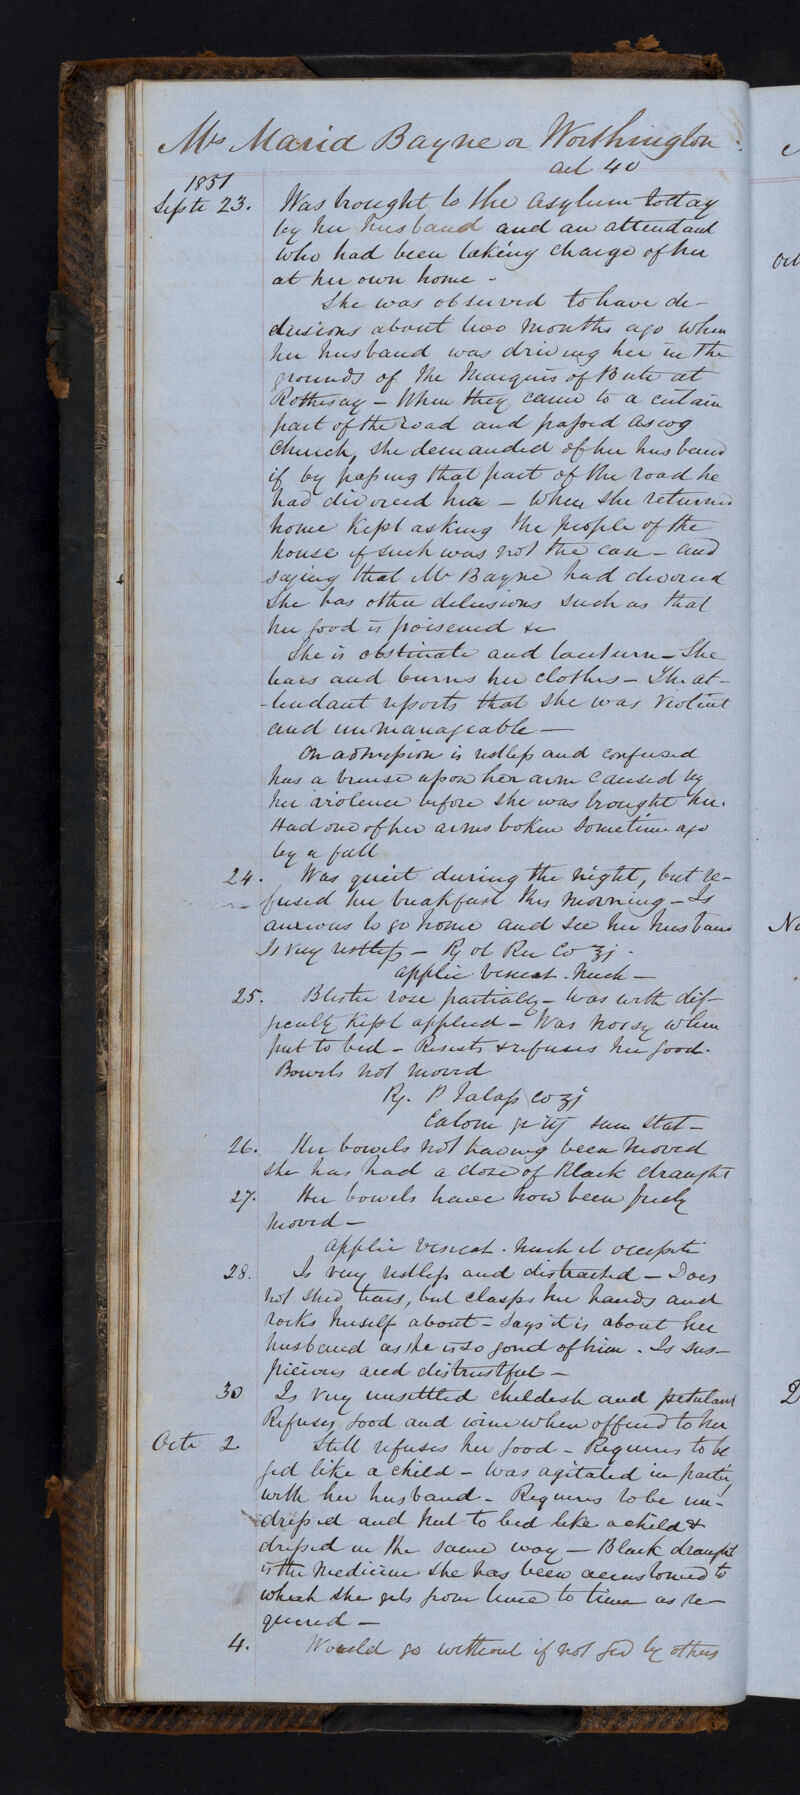 Mrs Maria Bayne or Worthington
aet 40
1851
Septr 23. Was brought to the asylum today
by her husband and an attendant
who had been taking charge of her
at her own home -
She was observed to have de-
lusions about two months ago when
her husband was driving her in the
grounds of the Marquis of Bute at
Rothesay - When they came to a certain
part of the road and passed Ascog
Church, she demanded of her husband
if by passing that part of the road he
had divorced her - When she returned
home kept asking the people of the
house if such was not the case - and
saying that Mr Bayne had divorced
She has other delusions such as that
her food is poisened &c
She is obstinate and taciturn - She
tears and burns her clothes - The at-
-tendant reports that she was violent
and unmanageable -
On admission is restless and confused
has a bruise upon her arm caused by
her violence before she was brought here.
Had one of her arms broken sometime ago
by a fall
24. Was quiet during the night, but re-
fused her breakfast this morning - Is
anxious to go home and see her husband
Is very restless - Rx ol Ric Co ʒj.
applic vesicat. nuch -
25. Blister rose partially - was with dif-
ficulty kept applied - Was noisy when
put to bed - Resists & refuses her food.
Bowels not moved
Rx. P Jalap co ʒj
Calom gr iij sum stat -
26. Her bowels not having been moved
she has had a dose of Black draught
27. Her bowels have now been freely
moved -
applic vesicat. nuch et occipiti
28. Is very restless and distracted - Does
not shed tears, but clasps her hands and
rocks herself about - says it is about her
husband as she is so fond of him. Is sus-
picious and distrustful -
30 Is very unsettled childish and petulant
Refuses food and wine when offered to her
Octr 2 Still refuses her food - Requires to be
fed like a child - was agitated in parting
with her husband - Requires to be un-
dressed and put to bed like a child &
dressed in the same way - Black draught
is the medicine she has been accustomed to
which she gets from time to time as re-
quired -
4. Would go without if not fed by others